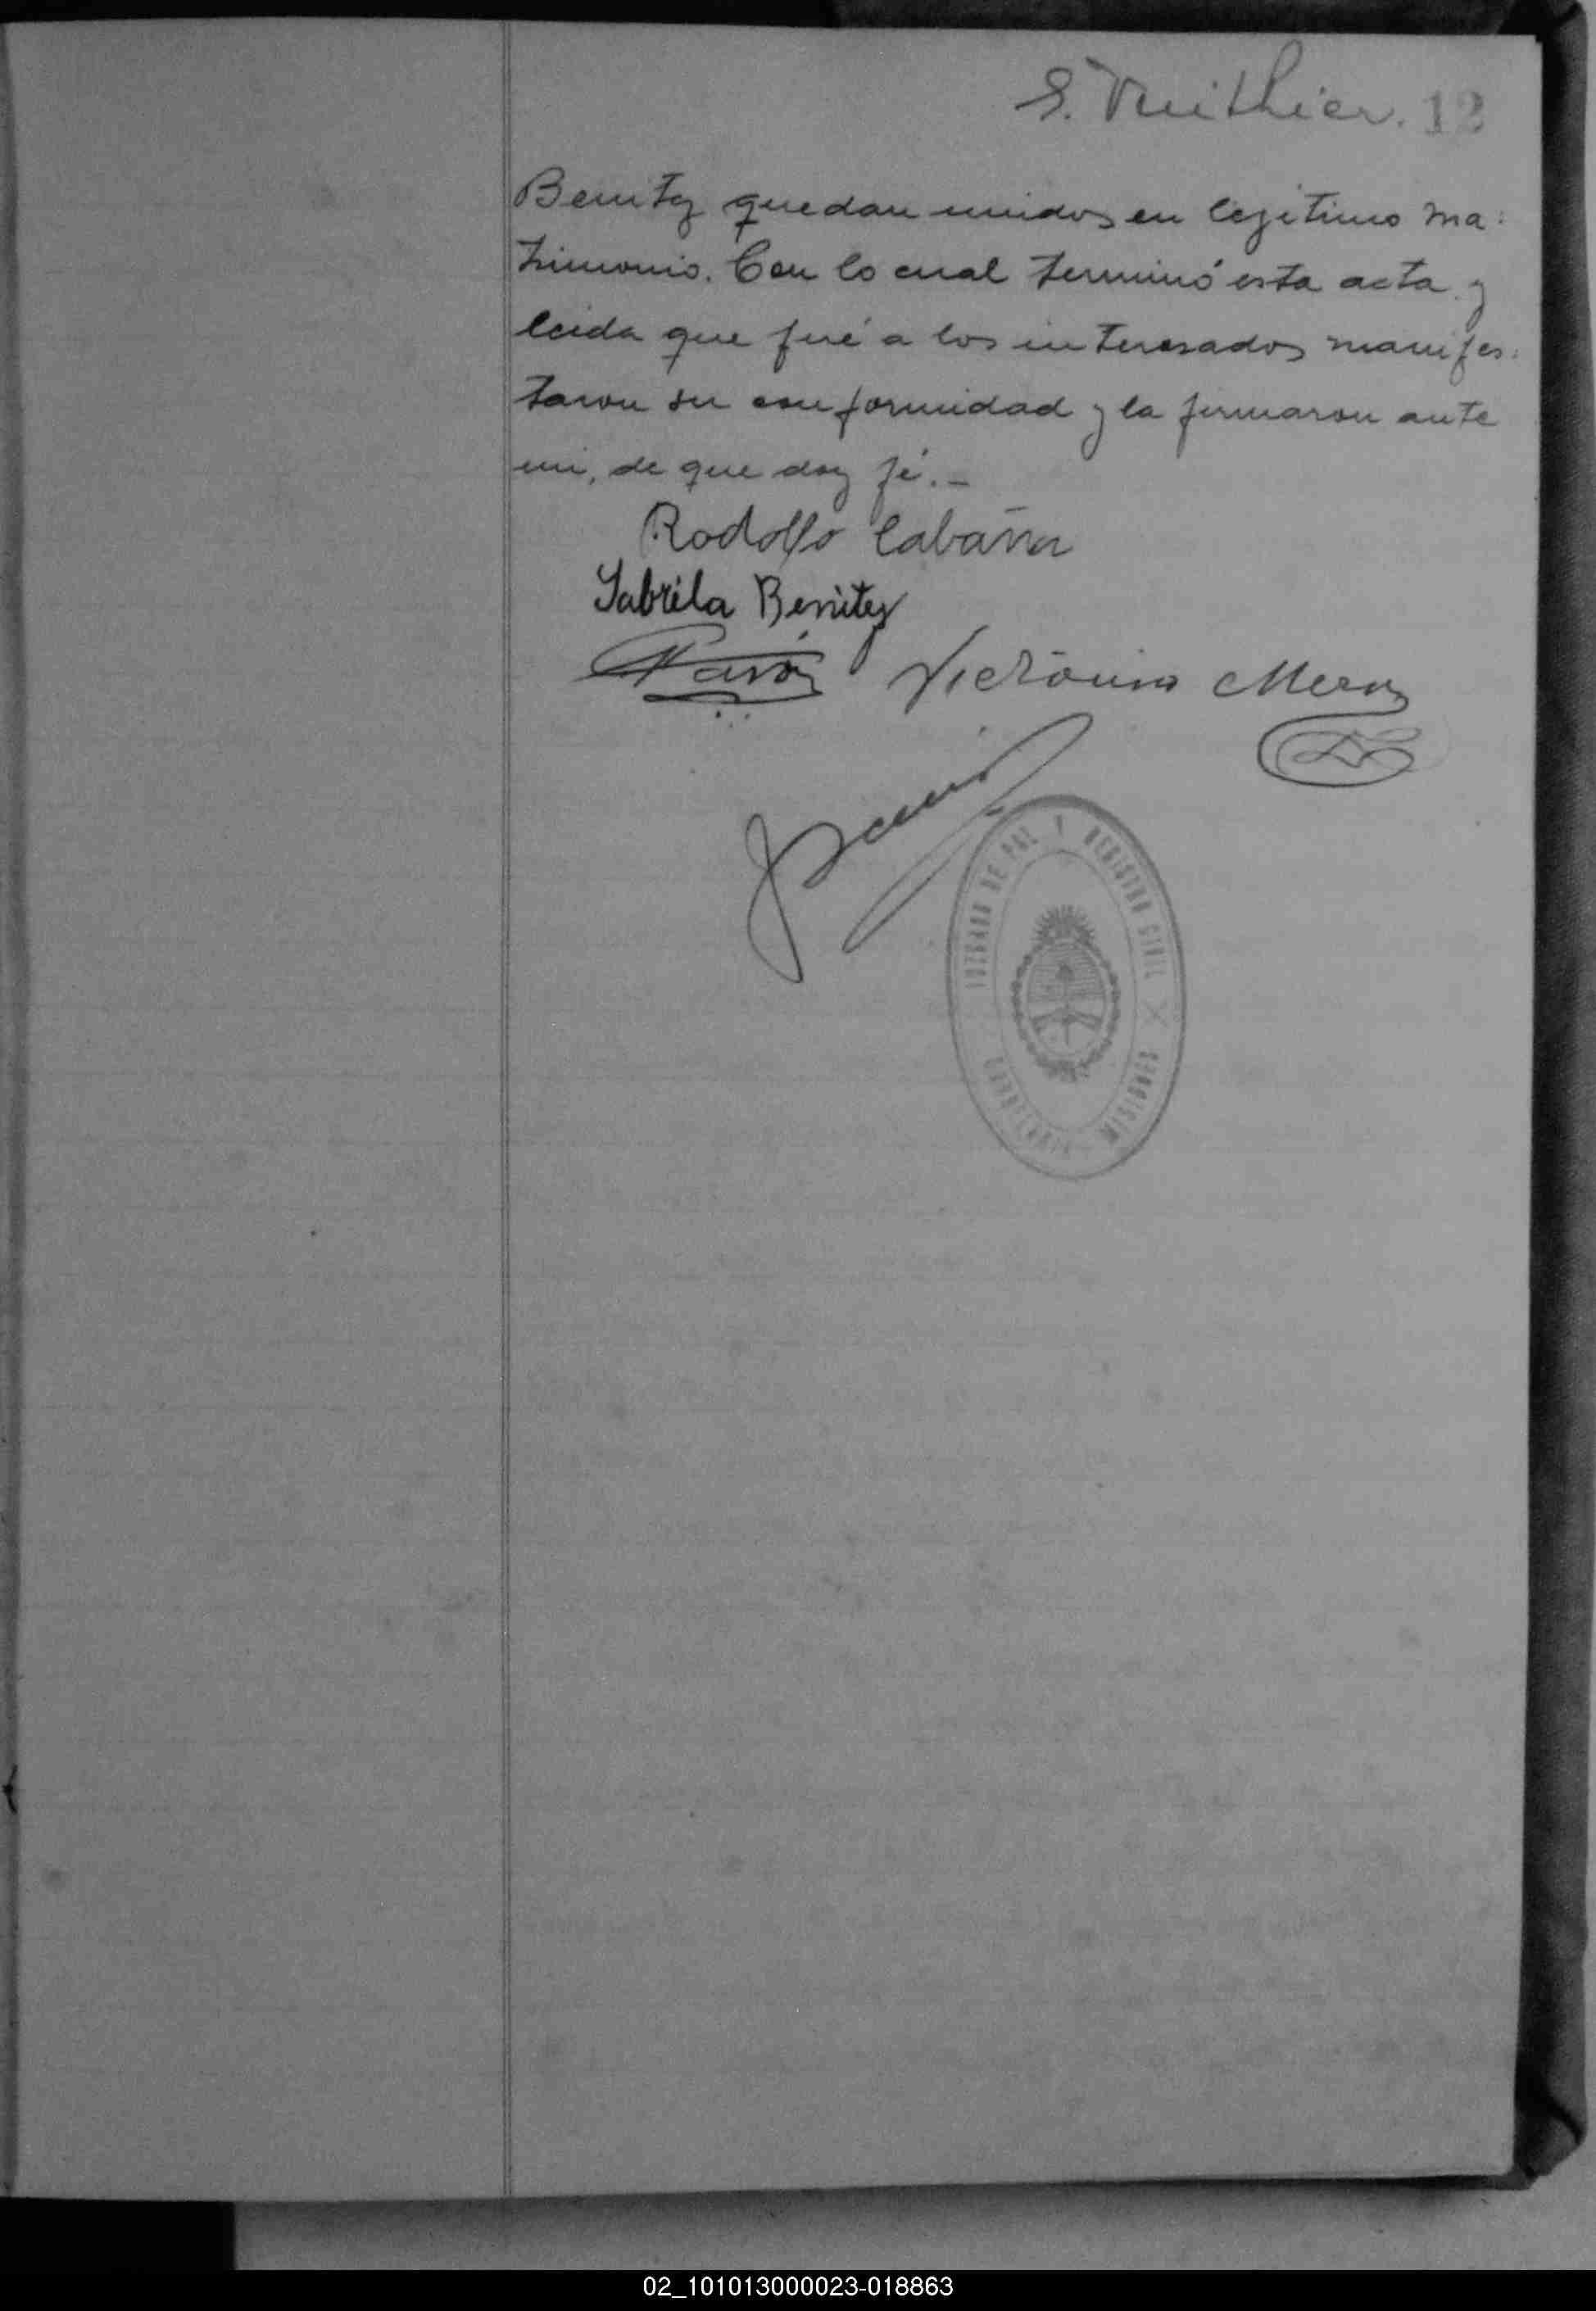 S. Vuithier. 12
Benitez quedan unidos en legitimo ma-
trimonio. Con lo cual terminó esta acta y
leida que fué a los interesados manifes-
taron su conformidad y la firmaron ante
mi, de que doy fé.-
Rodolfo Cabaña
Gabriela Benitez
Victorino Mera
JUZGADO DE PAZ Y REGISTRO CIVIL
CANDELARIA - MISIONES
02_101013000023-018863